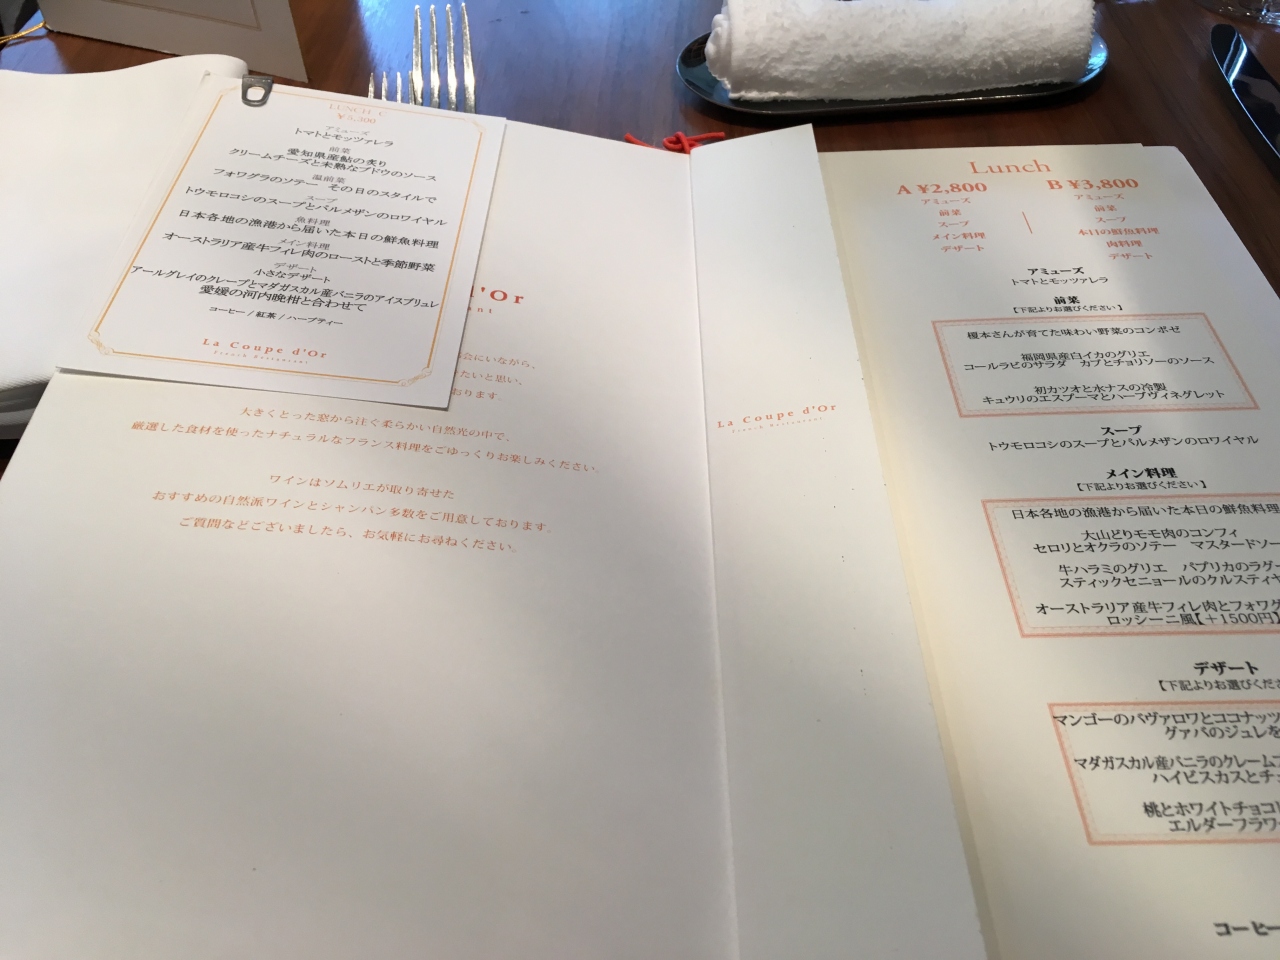 LUNCH C
¥5,300
アミューズ
トマトとモッツァレラ
前菜
愛知県産鮎の炙り
クリームチーズと未熟なブドウのソース
温前菜
フォワグラのソテー その日のスタイルで
スープ
トウモロコシのスープとパルメザンのロワイヤル
魚料理
日本各地の漁港から届いた本日の鮮魚料理
メイン料理
オーストラリア産牛フィレ肉のローストと季節野菜
デザート
小さなデザート
アールグレイのクレープとマダガスカル産バニラのアイスブリュレ
愛媛の河内晩柑と合わせて
コーヒー / 紅茶 / ハーブティー
La Coupe d'Or
French Restaurant
l'Or
ant
会にいながら、
たいと思い、
おります。
大きくとった窓から注ぐ柔らかい自然光の中で、
厳選した食材を使ったナチュラルなフランス料理をごゆっくりお楽しみください。
ワインはソムリエが取り寄せた
おすすめの自然派ワインとシャンパン多数をご用意しております。
ご質問などございましたら、お気軽にお尋ねください。
La Coupe d'Or
French Restaurant
Lunch
A ¥2,800
アミューズ
前菜
スープ
メイン料理
デザート
B ¥3,800
アミューズ
前菜
スープ
本日の鮮魚料理
肉料理
デザート
アミューズ
トマトとモッツァレラ
前菜
【下記よりお選びください】
榎本さんが育てた味わい野菜のコンポゼ
福岡県産白イカのグリエ
コールラビのサラダ カブとチョリソーのソース
初カツオと水ナスの冷製
キュウリのエスプーマとハーブヴィネグレット
スープ
トウモロコシのスープとパルメザンのロワイヤル
メイン料理
【下記よりお選びください】
日本各地の漁港から届いた本日の鮮魚料理
大山どりモモ肉のコンフィ
セロリとオクラのソテー マスタードソー
牛ハラミのグリエ パプリカのラグー
スティックセニョールのクルスティヤ
オーストラリア産牛フィレ肉とフォワグ
ロッシーニ風【+1500円】
デザート
【下記よりお選びくださ
マンゴーのババロワとココナッツ
グァバのジュレを
マダガスカル産バニラのクレーム
ハイビスカスとチ
桃とホワイトチョコレ
エルダーフラワー
コーヒー